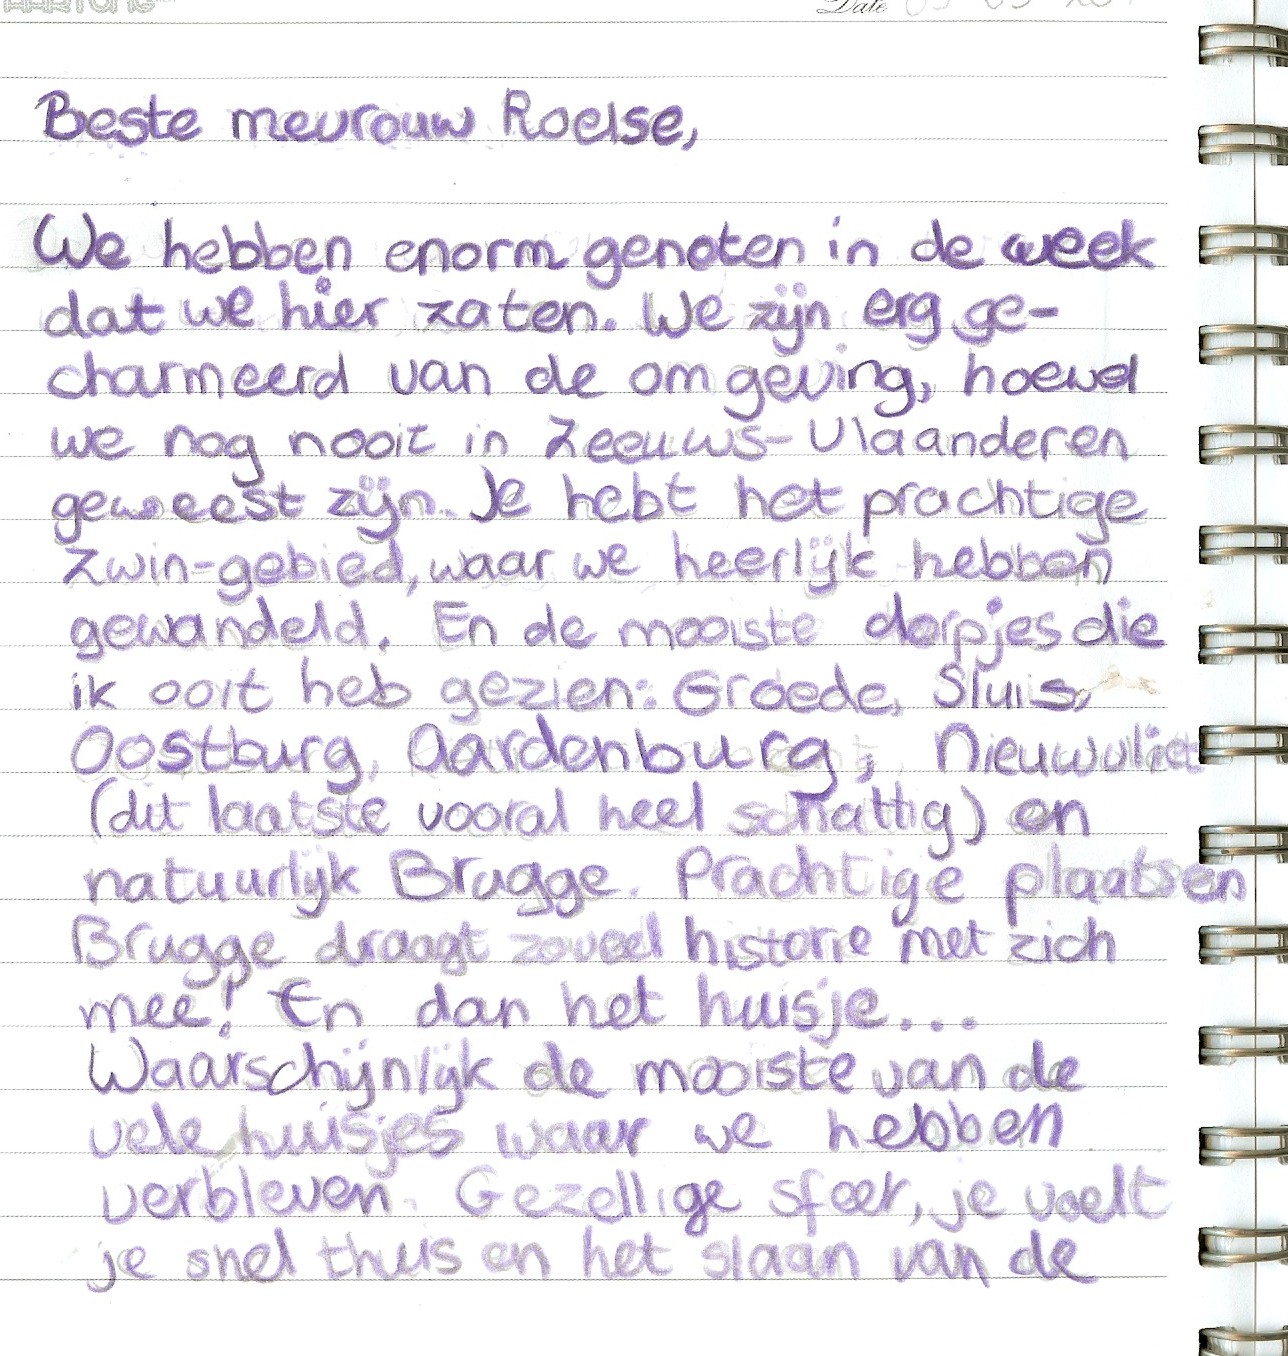 Date
Beste mevrouw Roelse,
We hebben enorm genoten in de week
dat we hier zaten. We zijn erg ge-
charmeerd van de omgeving, hoewel
we nog nooit in Zeeuws-Vlaanderen
geweest zijn. Je hebt het prachtige
Zwin-gebied, waar we heerlijk hebben
gewandeld. En de mooiste dorpjes die
ik ooit heb gezien: Groede, Sluis,
Oostburg, Aardenburg, Nieuwvliet
(dit laatste vooral heel schattig) en
natuurlijk Brugge. Prachtige plaatsen
Brugge draagt zoveel historie met zich
mee! En dan het huisje...
Waarschijnlijk de mooiste van de
vele huisjes waar we hebben
verbleven. Gezellige sfeer, je voelt
je snel thuis en het slaan van de